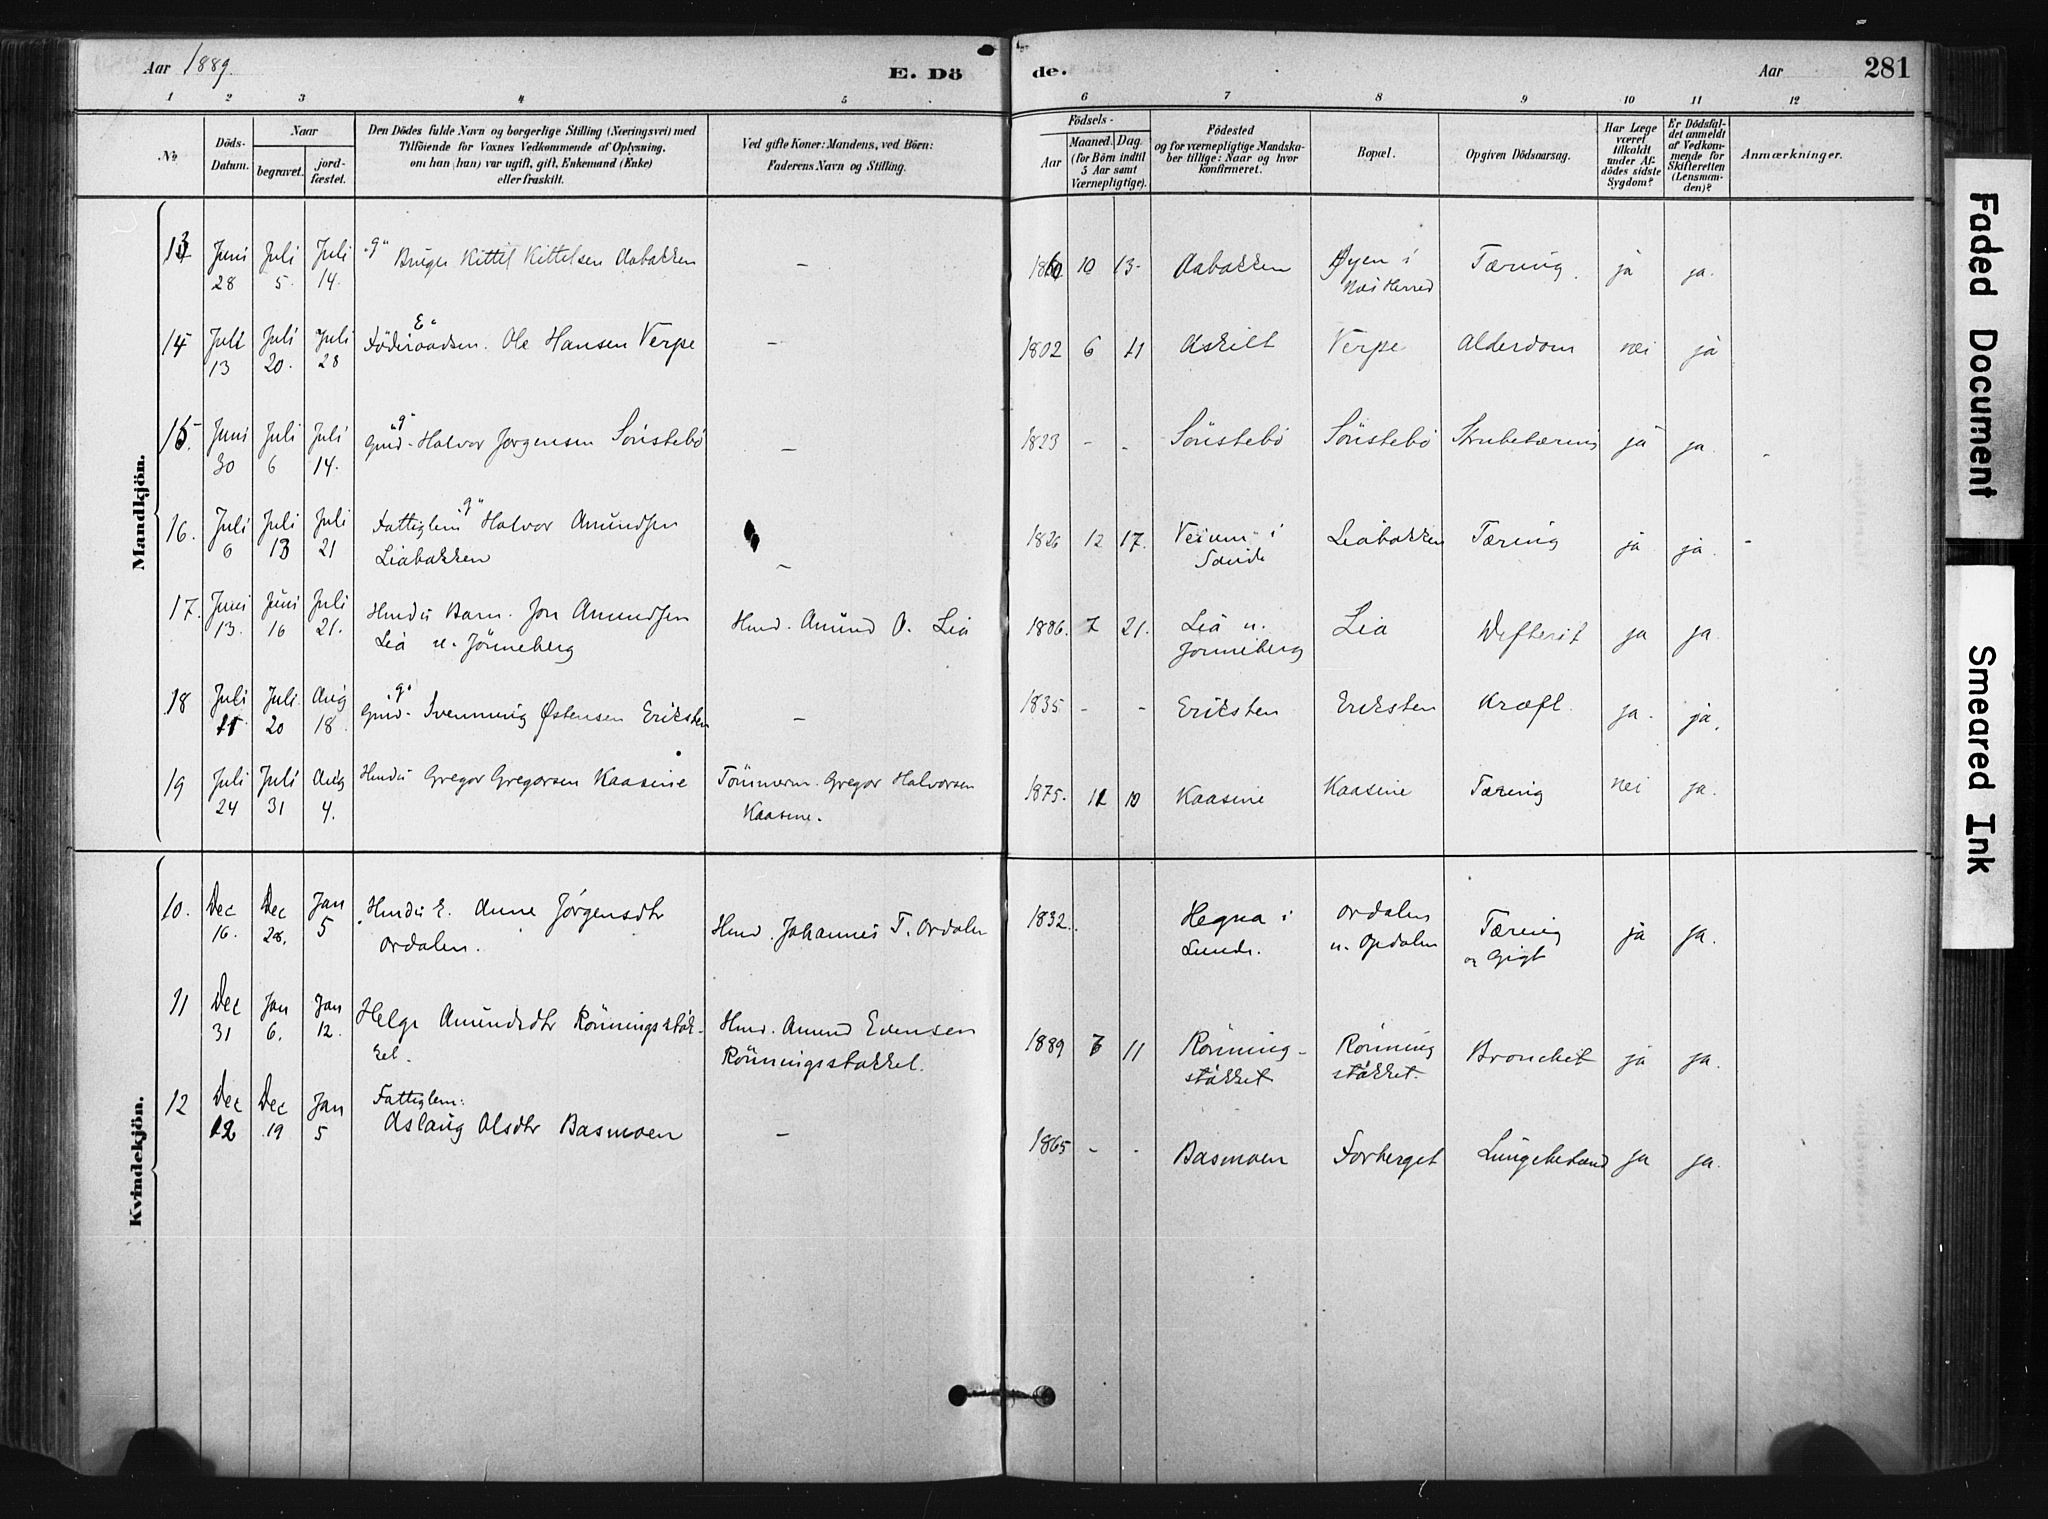 Aar 1889.
E. Dö
de.
Aar
281
1 2 3 4 5 6 7 8 9 10 11 12
No
Döds-Datum.
Naar
begravet.
jord-fæstet.
Den Dödes fulde Navn og borgerlige Stilling (Næringsvei) med
Tilföiende for Voxnes Vedkommende af Oplysning,
om han (hun) var ugift, gift, Enkemand (Enke)
eller fraskilt.
Ved gifte Koner: Mandens, ved Börn:
Faderens Navn og Stilling.
Födsels-
Aar
Maaned. Dag.
(for Börn indtil
5 Aar samt
Værnepligtige).
Födested
og for værnepligtige Mandska-
ber tillige: Naar og hvor
konfirmeret.
Bopæl.
Opgiven Dödsaarsag.
Har Læge
været
tilkaldt
under Af-
dödes sidste
Sygdom?
Er Dödsfal-
det anmeldt
af Vedkom-
mende for
Skifteretten
(Lensman-
den)?
Anmærkninger.
Mandkjön.
13 Juni 28 Juli 5. Juli 14. "g" Bruger Kittil Kittelsen Aabakken – 1860 10 13. Aabakken Øyen i Næs Herred Tæring. ja ja.
14 Juli 13 Juli 20. Juli 28 E" Föderaadsm. Ole Hansen Verpe – 1802 6 11 Askilt Verpe Alderdom nei ja
15. Juni 30 Juli 6 Juli 14. "g" Gmd. Halvor Jørgensen Sönstebö – 1823 - - Sönstebö Sönstebö Strubetæring ja ja.
16. Juli 6 Juli 13 Juli 21 Fattiglem "g" Halvor Amundsen
Liabakken – 1826 12 17. Veium i Saude Liabakken Tæring ja ja.
17. Juni 13. Juni 16 Juli 21. Hmds Barn. Jon Amundsen
Lia u. Jönneberg Hmd. Amund O. Lia 1886. 7 21. Lia u. Jonneberg Lia Difterit ja ja.
18 Juli Juli 20 Aug 18 "g" Gmd. Svenning Østensen Eriksten – 1835 - - Eriksten Eriksten Kræft. ja. ja.
19 Juli 24 Juli 31 Aug 4. Hmds Gregor Gregorsen Kaasine Tömmerm. Gregor Halvorsen
Kaasine. 1875. 10 Kaasine Kaasine Tæring nei ja.
Kvindekjön.
10. Dec 16. Dec 28. Jan 5 Hmds E. Anne Jørgensdtr
Ordalen. Hmd. Johannes T. Ordalen 1832. Hegna i Lunde. Ordalen u. Opdalen Tæring og Gigt ja ja.
11 Dec 31 Jan 6. Jan 12. Helge Amundsdtr Rönningsstök-
kel. Hmd. Amund Evensen
Rönningsstokkel. 1889 11 Rönning-
stökket Rönning
stökket. Bronchit ja ja.
12 Dec 12 Dec 19 Jan 5 Fattiglem:
Aslaug Olsdtr Basmoen – 1865 - - Basmoen Forberget Lungebetænd ja ja.
Faded Document
Smeared Ink